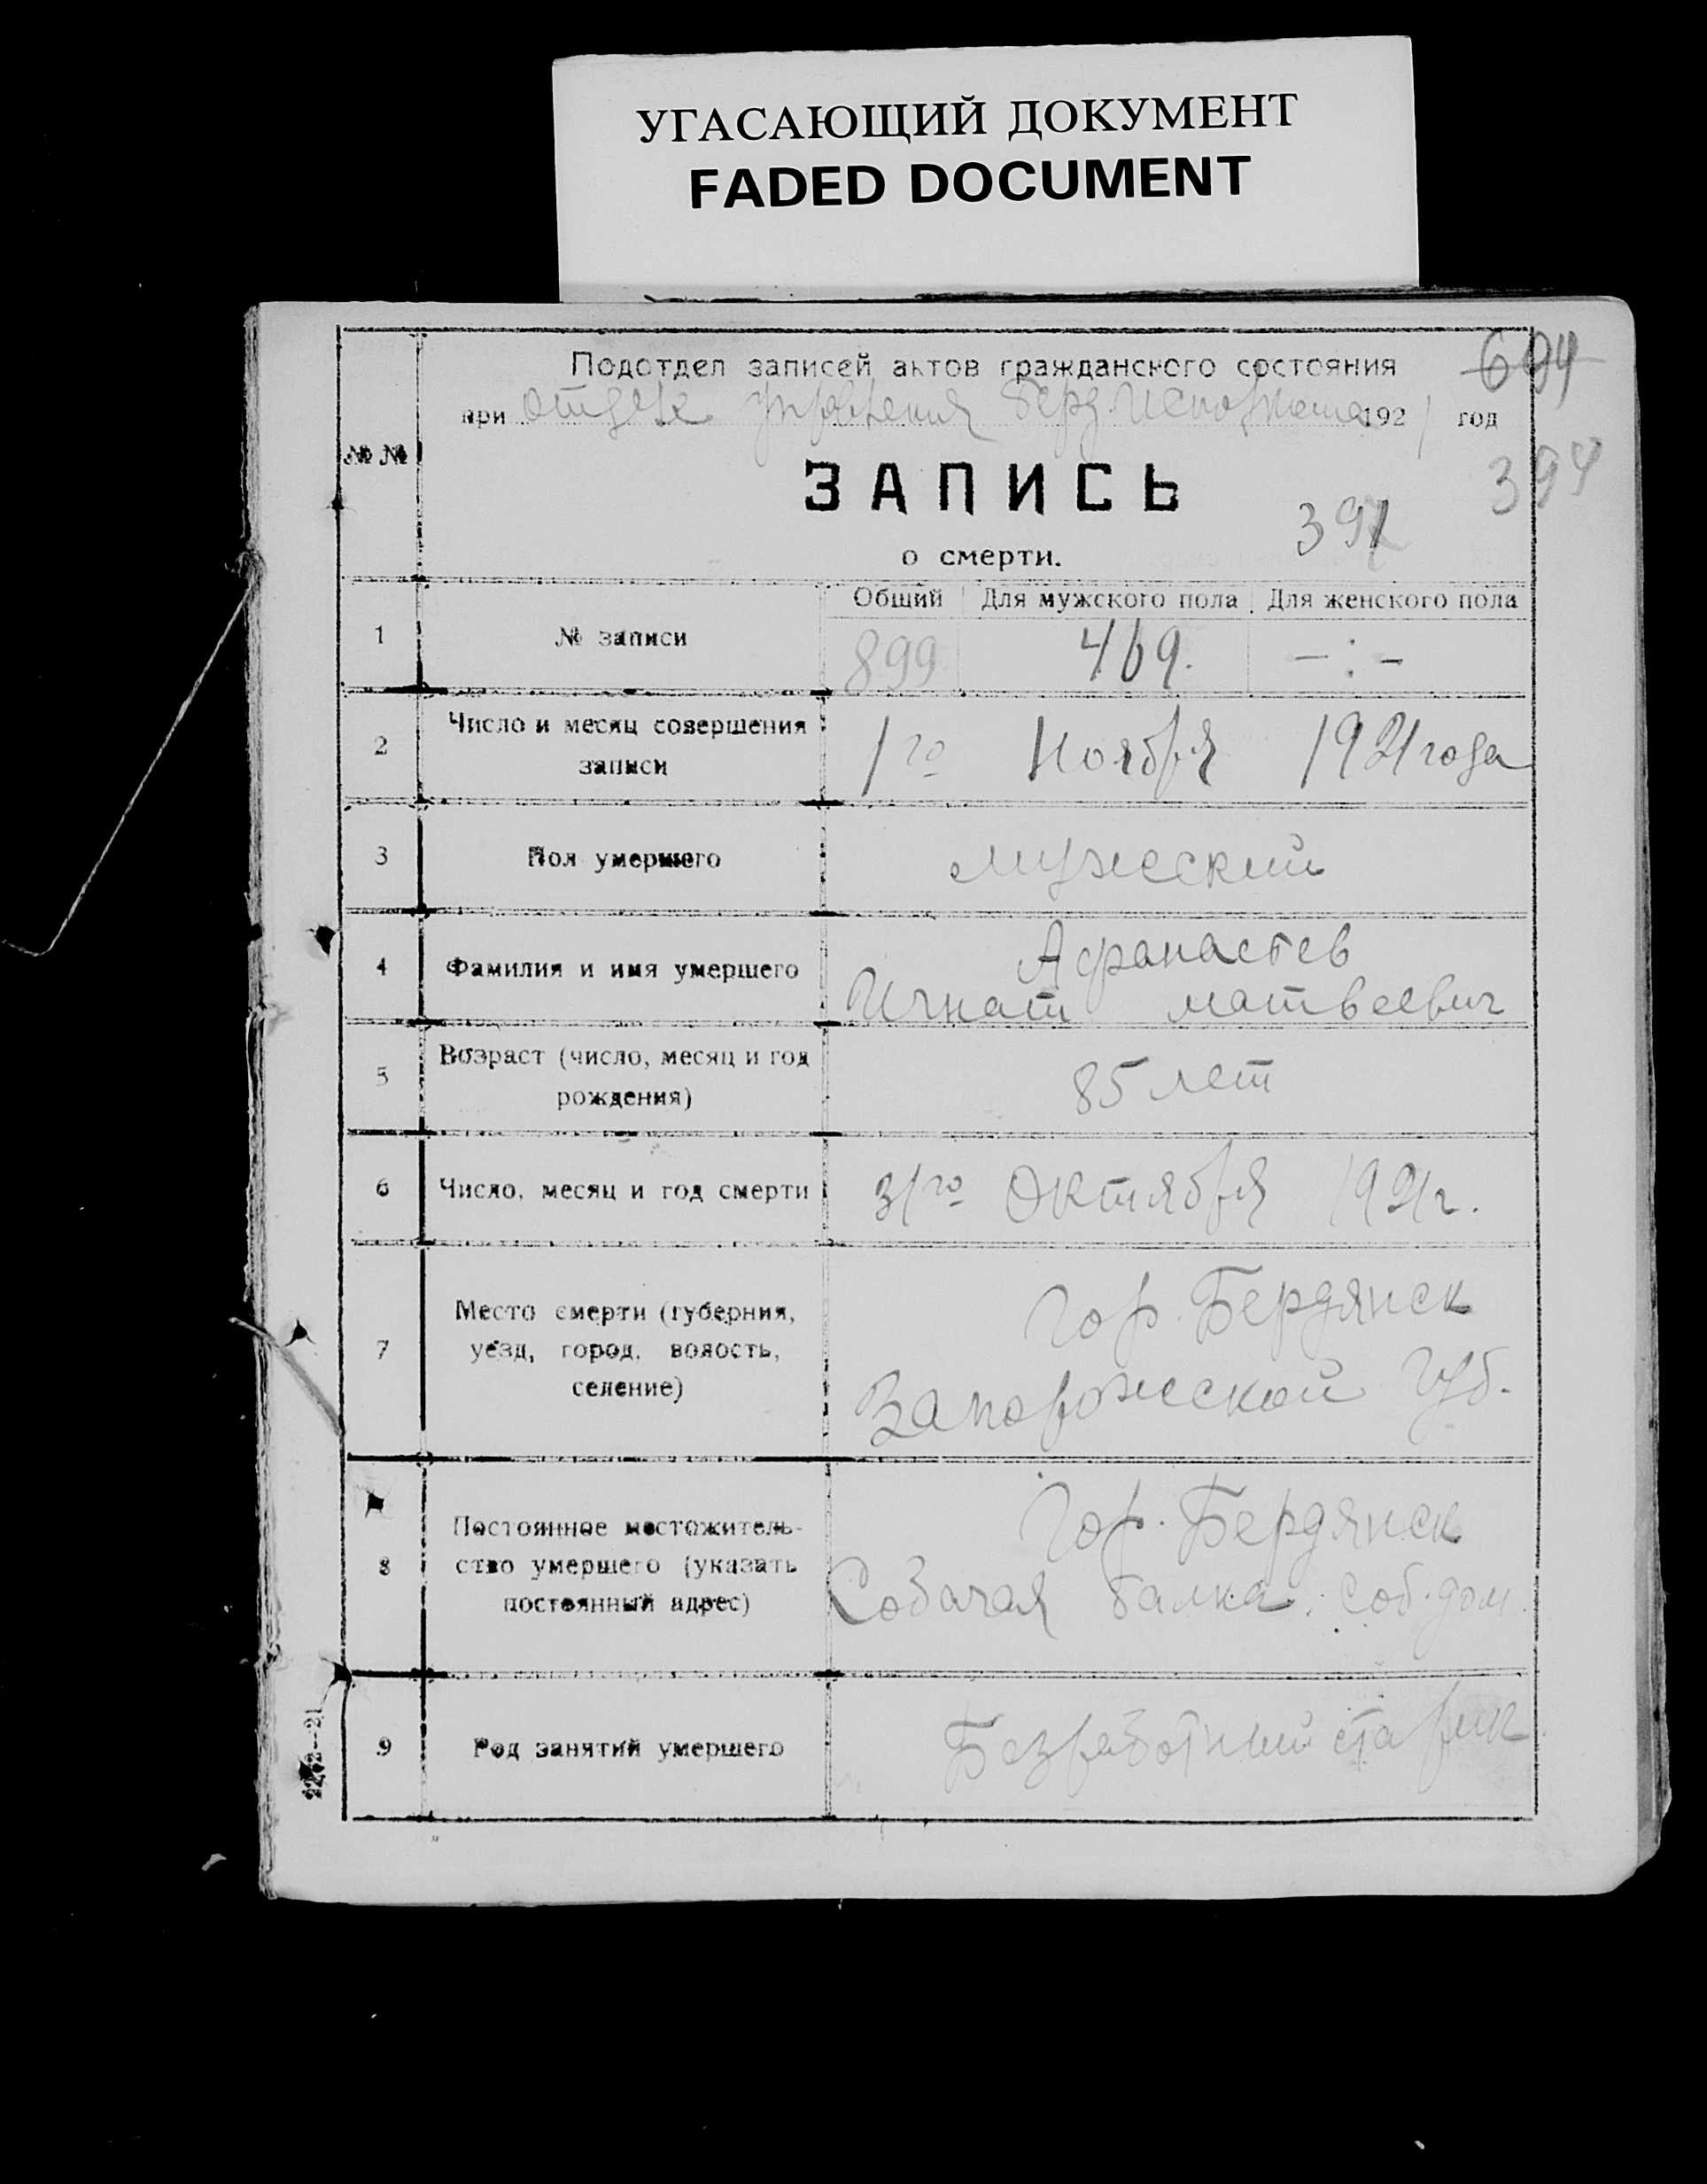 УГАСАЮЩИЙ ДОКУМЕНТ
FADED DOCUMENT
Подотдел записей актов гражданского состояния
694
при отделе управления Берд. Исполкома 1921 год
№ №
394
ЗАПИСЬ
о смерти.
Общий Для мужского пола Для женского пола
1 № записи 899 469. – : –
2 Число и месяц совершения
записи
1го Ноября 1921 года
3 Пол умершего мужеский
4 Фамилия и имя умершего
Афанасьев
Игнат Матвеевич
5 Возраст (число, месяц и год
рождения)
85 лет
6 Число, месяц и год смерти 31го Октября 1921 г.
7 Место смерти (губерния,
уезд, город, волость,
селение)
Гор. Бердянск
Запорожеской Губ.
8 Постоянное местожитель-
ство умершего (указать
постоянный адрес)
Гор. Бердянск
Собачая балка, соб. дом.
9 Род занятий умершего Безработный старик